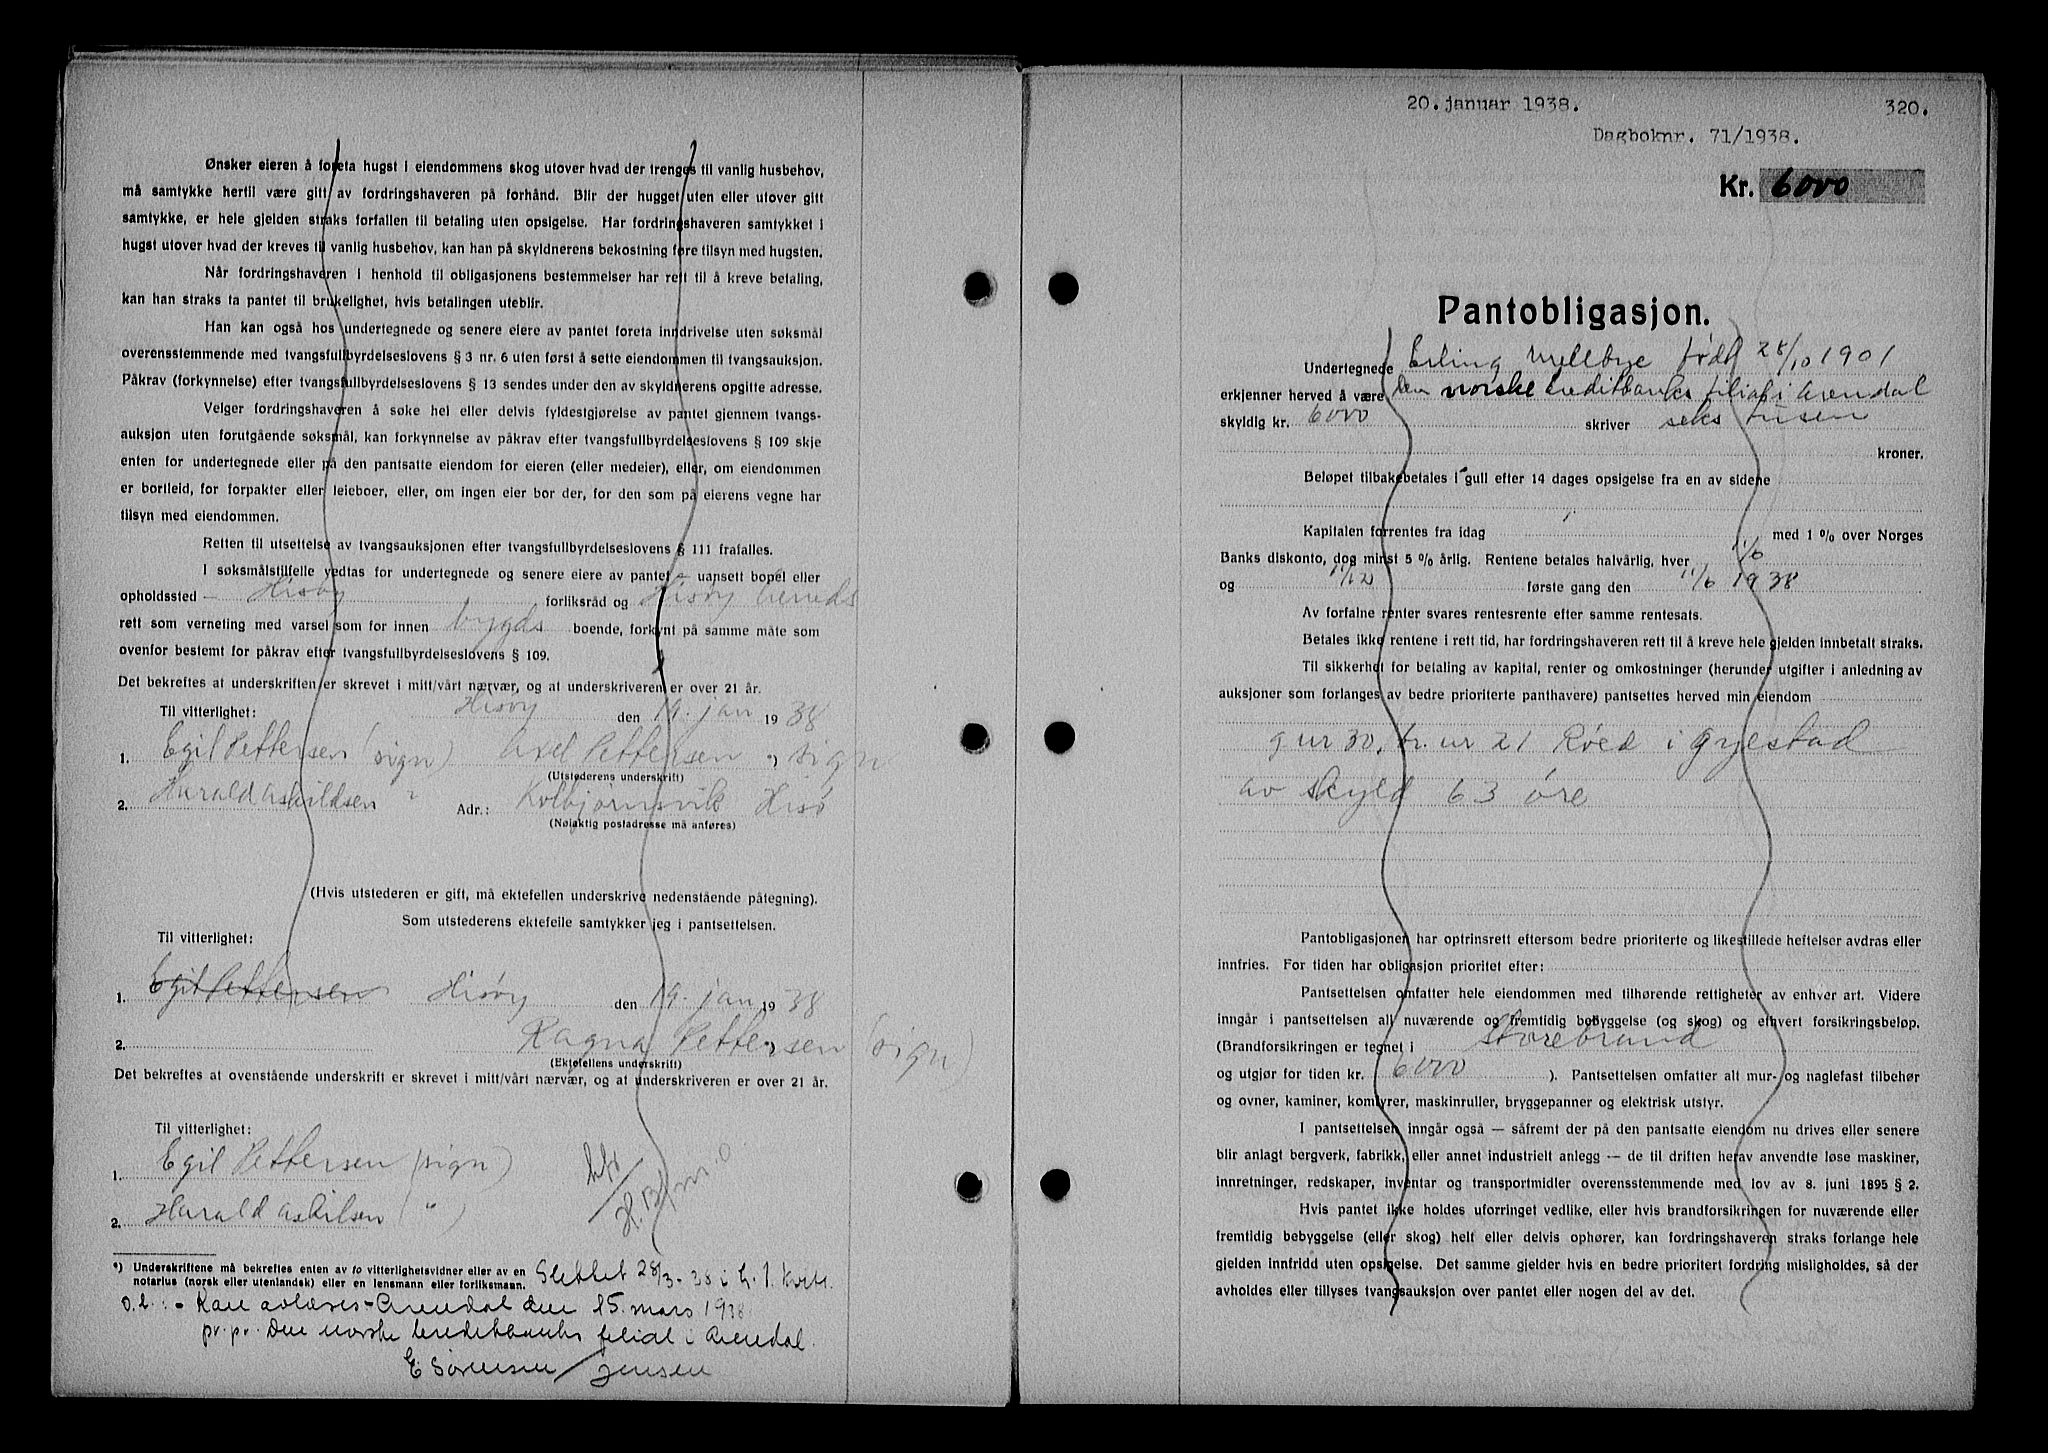 Ønsker eieren å foreta hugst i eiendommens skog utover hvad der trenges til vanlig husbehov,
må samtykke hertil være gitt av fordringshaveren på forhånd. Blir der hugget uten eller utover gitt
samtykke, er hele gjelden straks forfallen til betaling uten opsigelse. Har fordringshaveren samtykket i
hugst utover hvad der kreves til vanlig husbehov, kan han på skyldnerens bekostning føre tilsyn med hugsten.
Når fordringshaveren i henhold til obligasjonens bestemmelser har rett til å kreve betaling,
kan han straks ta pantet til brukelighet, hvis betalingen uteblir.
Han kan også hos undertegnede og senere eiere av pantet foreta inndrivelse uten søksmål
overensstemmende med tvangsfullbyrdelseslovens § 3 nr. 6 uten først å sette eiendommen til tvangsauksjon.
Påkrav (forkynnelse) efter tvangsfullbyrdelseslovens § 13 sendes under den av skyldnerens opgitte adresse.
Velger fordringshaveren å søke hel eller delvis fyldestgjørelse av pantet gjennem tvangs-
auksjon uten forutgående søksmål, kan forkynnelse av påkrav efter tvangsfullbyrdelseslovens § 109 skje
enten for undertegnede eller på den pantsatte eiendom for eieren (eller medeier), eller, om eiendommen
er bortleid, for forpakter eller leieboer, eller, om ingen eier bor der, for den som på eierens vegne har
tilsyn med eiendommen.
Retten til utsettelse av tvangsauksjonen efter tvangsfullbyrdelseslovens § 111 frafalles.
I søksmålstilfelle vedtas for undertegnede og senere eiere av pantet — uansett bopel eller
opholdssted — Hisøy forliksråd og Hisøy herreds
rett som verneting med varsel som for innen bygds boende, forkynt på samme måte som
ovenfor bestemt for påkrav efter tvangsfullbyrdelseslovens § 109.
Det bekreftes at underskriften er skrevet i mitt/vårt nærvær, og at underskriveren er over 21 år.
Til vitterlighet: Hisøy den 19. jan 1938
1. Egil Pettersen (sign) Axel Pettersen *) sign
(Utstederens underskrift)
2. Harald Askildsen " Adr.: Kolbjørnsvik Hisø
(Nøiaktig postadresse må anføres)
(Hvis utstederen er gift, må ektefellen underskrive nedenstående påtegning).
Som utstederens ektefelle samtykker jeg i pantsettelsen.
Til vitterlighet:
1. Egil Pettersen Hisøy den 19. jan 1938
2. Ragna Pettersen (sign)
(Ektefellens underskrift)
Det bekreftes at ovenstående underskrift er skrevet i mitt/vårt nærvær, og at underskriveren er over 21 år.
Til vitterlighet:
1. Egil Pettersen (sign)
2. Harald Askilsen ( " )
*) Underskriftene må bekreftes enten av to vitterlighetsvidner eller av en
notarius (norsk eller utenlandsk) eller en lensmann eller forliksmann.
Slettet 28/3-38 i h. t. kvite.
o. l. : - Kan avlæses - Arendal den 15. mars 1938
pr. pr. Den norske kreditbanks filial i Arendal.
E Sørensen / Jensen
20. januar 1938. 320.
Dagboknr. 71/1938.
Kr. 6000
Pantobligasjon.
Undertegnede Erling Mellbye født 28/10 1901
erkjenner herved å være den norske kreditbanks filial i Arendal
skyldig kr. 6000 skriver seks tusen
kroner.
Beløpet tilbakebetales i gull efter 14 dages opsigelse fra en av sidene
Kapitalen forrentes fra idag med 1 % over Norges
Banks diskonto, dog minst 5 % årlig. Rentene betales halvårlig, hver 11/6
og 11/12 første gang den 11/6 1938
Av forfalne renter svares rentesrente efter samme rentesats.
Betales ikke rentene i rett tid, har fordringshaveren rett til å kreve hele gjelden innbetalt straks.
Til sikkerhet for betaling av kapital, renter og omkostninger (herunder utgifter i anledning av
auksjoner som forlanges av bedre prioriterte panthavere) pantsettes herved min eiendom
g nr 30, br. nr 21 Røed i Gjestad
av skyld 63 øre
Pantobligasjonen har optrinsrett eftersom bedre prioriterte og likestillede heftelser avdras eller
innfries. For tiden har obligasjon prioritet efter:
Pantsettelsen omfatter hele eiendommen med tilhørende rettigheter av enhver art. Videre
inngår i pantsettelsen all nuværende og fremtidig bebyggelse (og skog) og ethvert forsikringsbeløp.
(Brandforsikringen er tegnet i Storebrand
og utgjør for tiden kr. 6000 ). Pantsettelsen omfatter alt mur- og naglefast tilbehør
og ovner, kaminer, komfyrer, maskinruller, bryggepanner og elektrisk utstyr.
I pantsettelsen inngår også — såfremt der på den pantsatte eiendom nu drives eller senere
blir anlagt bergverk, fabrikk, eller annet industrielt anlegg — de til driften herav anvendte løse maskiner,
innretninger, redskaper, inventar og transportmidler overensstemmende med lov av 8. juni 1895 § 2.
Hvis pantet ikke holdes uforringet vedlike, eller hvis brandforsikringen for nuværende eller
fremtidig bebyggelse (eller skog) helt eller delvis ophører, kan fordringshaveren straks forlange hele
gjelden innfridd uten opsigelse. Det samme gjelder hvis en bedre prioritert fordring misligholdes, så der
avholdes eller tillyses tvangsauksjon over pantet eller nogen del av det.